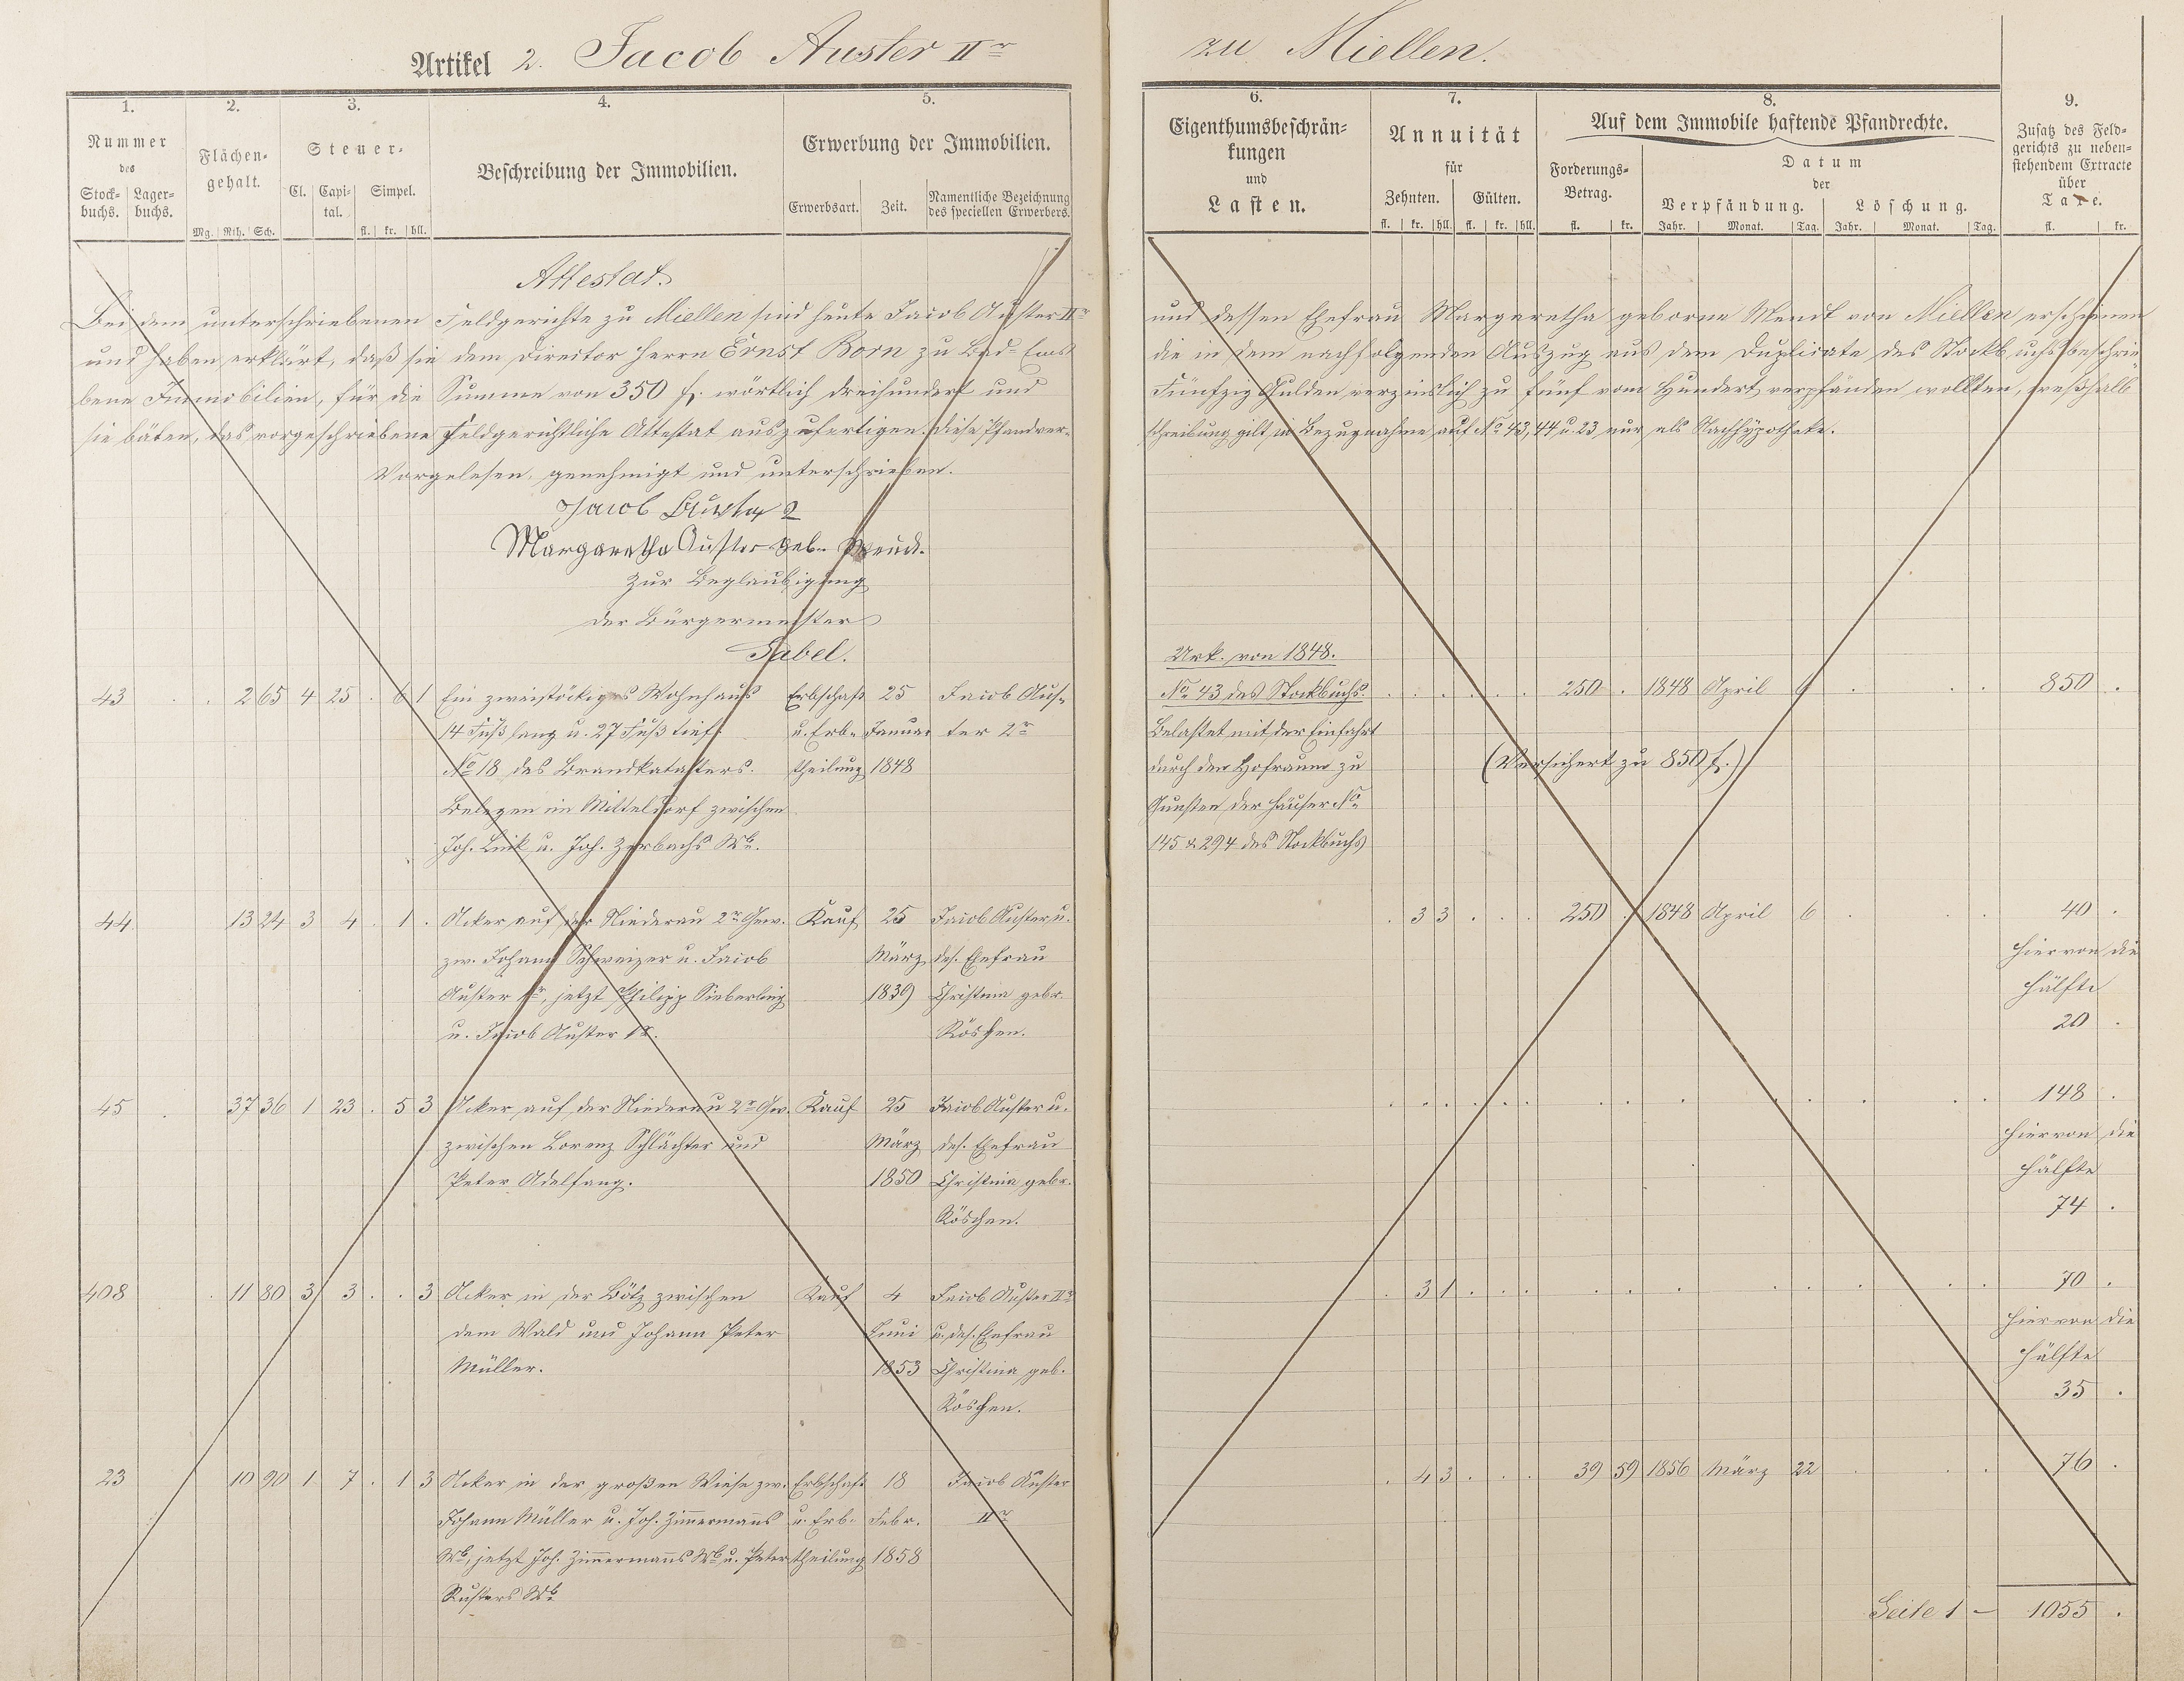 Artikel 2. Jacob Auster IIr zu Miellen.
1. 2. 3. 4. 5. 6. 7. 8. 9.
Nummer des
Stock-buchs. Lager-buchs.
Flächen-gehalt.
Mg. Rth. Sch.
Steuer-
Cl. Capi-tal. Simpel.
fl. kr. hll.
Beschreibung der Immobilien.
Erwerbung der Immobilien.
Erwerbsart. Zeit. Namentliche Bezeichnung des speciellen Erwerbers.
Eigenthumsbeschrän-
kungen
und
Lasten.
Annuität
für
Zehnten. Gülten.
fl. kr. hll. fl. kr. hll.
Auf dem Immobile haftende Pfandrechte.
Forderungs-
Betrag.
fl. kr.
Datum
der
Verpfändung. Löschung.
Jahr. Monat. Tag. Jahr. Monat. Tag.
Zusatz des Feld-
gerichts zu neben-
stehendem Extracte
über
Taxe.
fl. kr.
Attestat.
Bei dem unterschriebenen Feldgerichte zu Miellen sind heute Jacob Auster IIr und dessen Ehefrau Margaretha geborne Wendt von Miellen erschienen
und haben erklärt, daß sie dem Director Herrn Ernst Born zu Bad-Ems die in dem nachfolgenden Auszug aus dem Duplicate des Stockbuchs beschrie-
bene Immobilien, für die Summe von 350 fl. wörtlich dreihundert und Fünfzig Gulden verzinslich zu fünf vom Hundert verpfänden wollten, weßhalb
sie bäten, das vorgeschriebene feldgerichtliche Attestat auszufertigen. Diese Pfandver-schreibung gilt in Bezugnahme auf No 43, 44 u. 23 nur als Nachhypotheke.
Vorgelesen, genehmigt und unterschrieben.
Jacob Auster 2
Margaretha Auster geb.
Zur Beglaubigung
der Bürgermeister
Sabel.
Urk. von 1848.
43 . . 2 65 4 25 . 6 1 Ein zweistöckiges Wohnhaus Erbschaft 25 Jacob Aus- No 43 des Stockbuchs. 250 . 1848 April 6 850 .
14 Fuß lang u. 27 Fuß tief. u. Erb- Januar ter 2r Belastet mit der Einfahrt
No 18 des Brandkatasters. theilung 1848 durch den Hofraum zu (Versichert zu 850 fl.)
Belegen im Mitteldorf zwischen Gunsten der Häuser No
Joh. Link u. Joh. Zerbachs Wb. 145 & 294 des Stockbuchs
44 13 24 3 4 . 1 . Acker auf der Niederau 2r Gew. Kauf 25 Jacob Auster u. . 3 3 . . . 250 . 1848 April 6 40 .
zw. Johann Schweizer u. Jacob März des. Ehefrau hiervon die
Auster 1r, jetzt Philipp Sieberling 1839 Christina gebr. Hälfte
u. Jacob Auster 1r. Röschen. 20 .
45 37 36 1 23 . 5 3 Acker auf der Niederau 2r Gew. Kauf 25 Jacob Auster u. 148 .
zwischen Lorenz Schlächter und März des. Ehefrau hiervon die
Peter Adelfang. 1850 Christina gebr. Hälfte
Röschen. 74 .
408 . 11 80 3 3 . . 3 Acker in der Bötz zwischen Kauf 4 Jacob Auster IIr . 3 1 . . . 70 .
dem Wald und Johann Peter Juni u. des. Ehefrau hiervon die
Müller. 1853 Christina geb. Hälfte
Röschen. 35 .
23 10 90 1 7 . 1 3 Acker in der großen Wiese zw. Erbschaft 18 Jacob Auster . 4 3 . . . 39 59 1856 März 22 76 .
Johann Müller u. Joh. Zimmermanns u. Erb- Febr. IIr
Wb, jetzt Joh. Zimmermanns Wb u. Peter theilung 1858
Wb.
Seite 1 – 1055 .